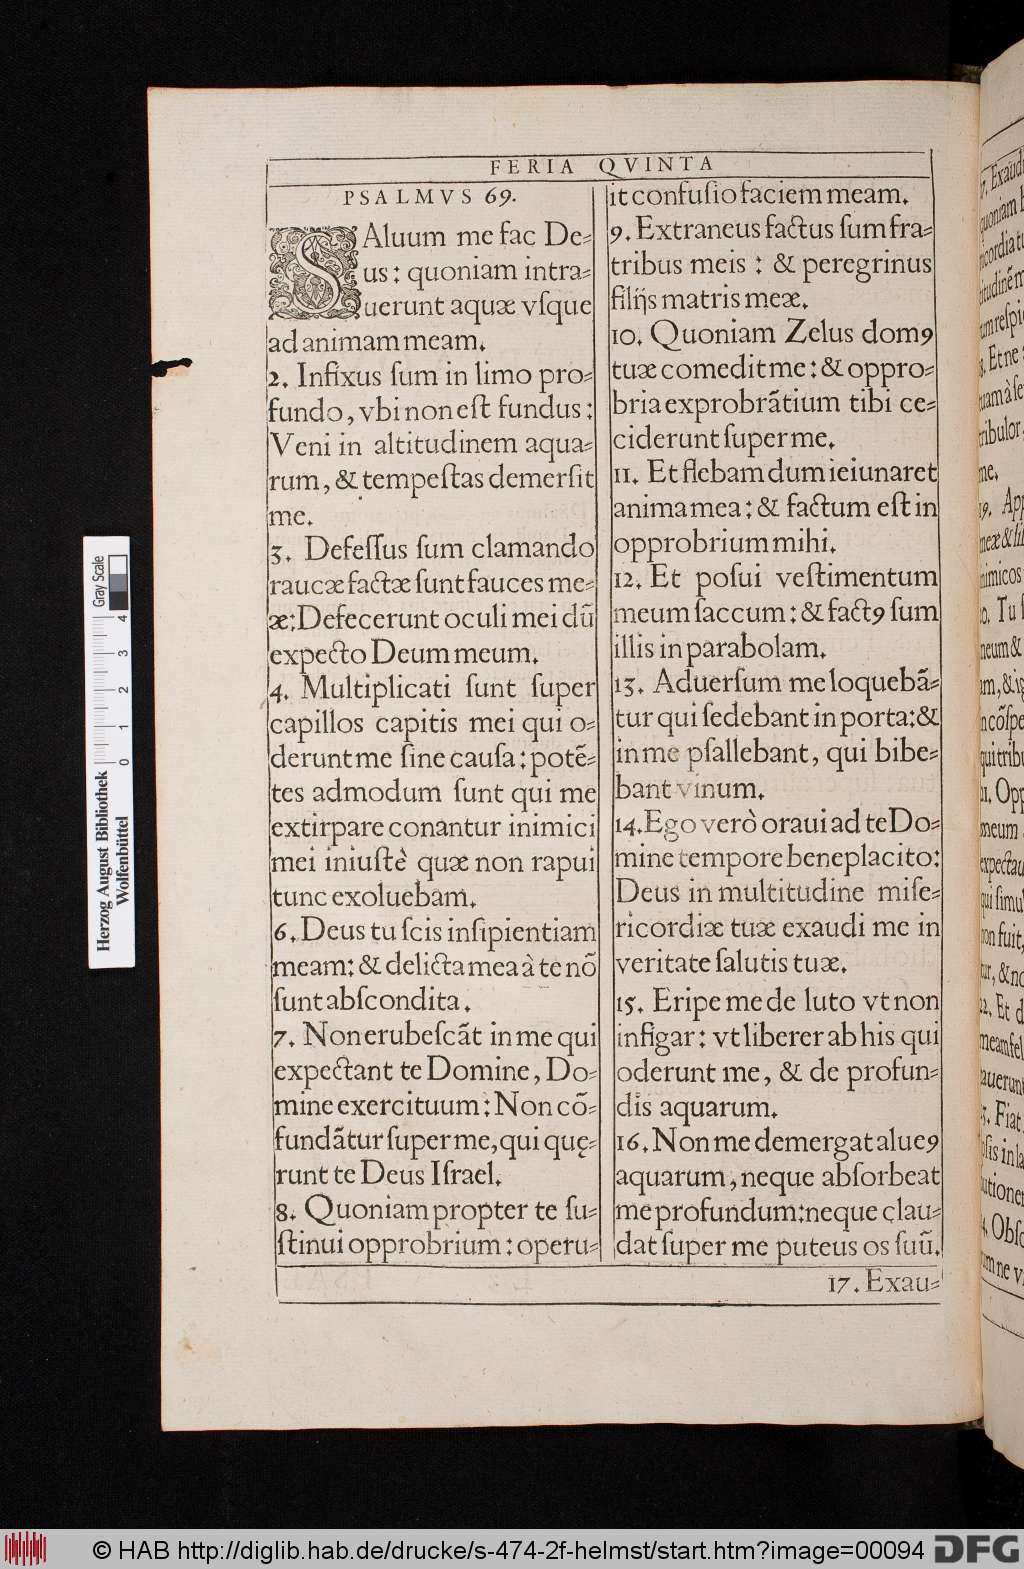 FERIA QVINTA
PSALMVS 69.
SAluum me fac De-
us: quoniam intra-
uerunt aquæ vſque
ad animam meam.
2. Infixus ſum in limo pro-
fundo, vbi non eſt fundus:
Veni in altitudinem aqua-
rum, & tempeſtas demerſit
me.
3. Defeſſus ſum clamando
raucæ factæ ſunt fauces me-
æ: Defecerunt oculi mei dū
expecto Deum meum.
4. Multiplicati ſunt ſuper
capillos capitis mei qui o-
derunt me ſine cauſa: potẽ-
tes admodum ſunt qui me
extirpare conantur inimici
mei iniuſtè quæ non rapui
tunc exoluebam.
6. Deus tu ſcis inſipientiam
meam: & delicta mea à te nõ
ſunt abſcondita.
7. Non erubeſcãt in me qui
expectant te Domine, Do-
mine exercituum: Non cõ-
fundãtur ſuper me, qui quę-
runt te Deus Iſrael.
8. Quoniam propter te ſu-
ſtinui opprobrium: operu-
it confuſio faciem meam.
9. Extraneus factus ſum fra-
tribus meis: & peregrinus
filijs matris meæ.
10. Quoniam Zelus domꝰ
tuæ comedit me: & oppro-
bria exprobrãtium tibi ce-
ciderunt ſuper me.
11. Et flebam dum ieiunaret
anima mea: & factum eſt in
opprobrium mihi.
12. Et poſui veſtimentum
meum ſaccum: & factꝰ ſum
illis in parabolam.
13. Aduerſum me loquebã-
tur qui ſedebant in porta: &
in me pſallebant, qui bibe-
bant vinum.
14. Ego verò oraui ad te Do-
mine tempore beneplacito:
Deus in multitudine miſe-
ricordiæ tuæ exaudi me in
veritate ſalutis tuæ.
15. Eripe me de luto vt non
infigar: vt liberer ab his qui
oderunt me, & de profun-
dis aquarum.
16. Non me demergat alueꝰ
aquarum, neque abſorbeat
me profundum: neque clau-
dat ſuper me puteus os ſuū.
17. Exau-
17. Exaudi
quoniam
me.
19. App
meæ & li
inimicos
Herzog August Bibliothek
Wolfenbüttel
0 1 2 3 4
Gray Scale
© HAB http://diglib.hab.de/drucke/s-474-2f-helmst/start.htm?image=00094
DFG